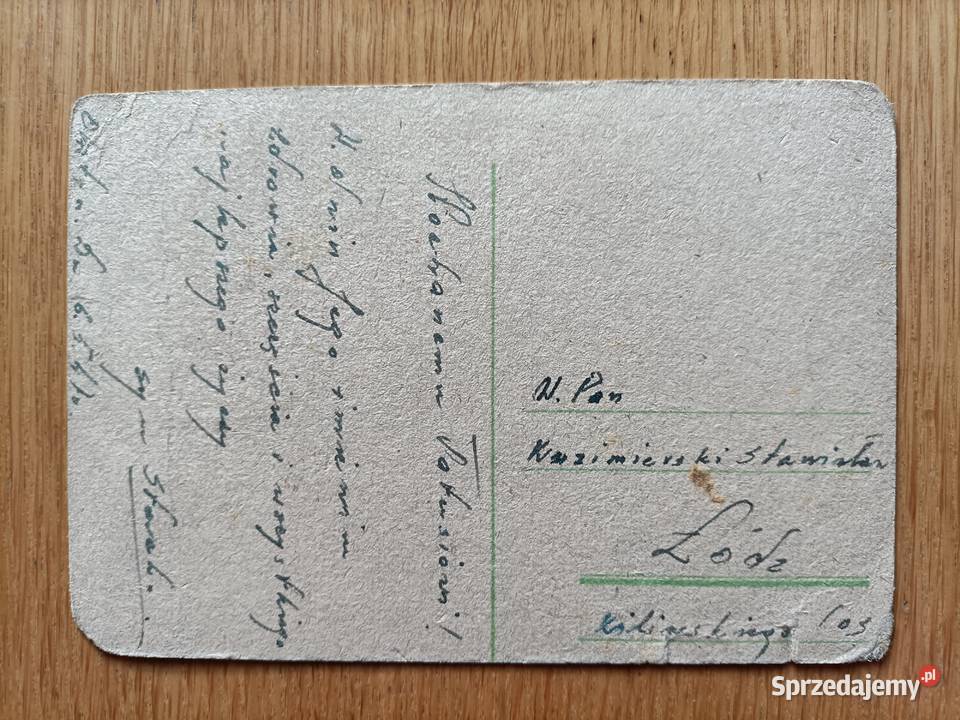 Kochanemu Tatusiowi!
W dniu Jego imienin
zdrowia, szczęścia i wszystkiego
najlepszego życzy
syn
6.5.
W. Pan
Kazimierski Stanisław
Łódź
Kilińskiego 103
Sprzedajemy.pl